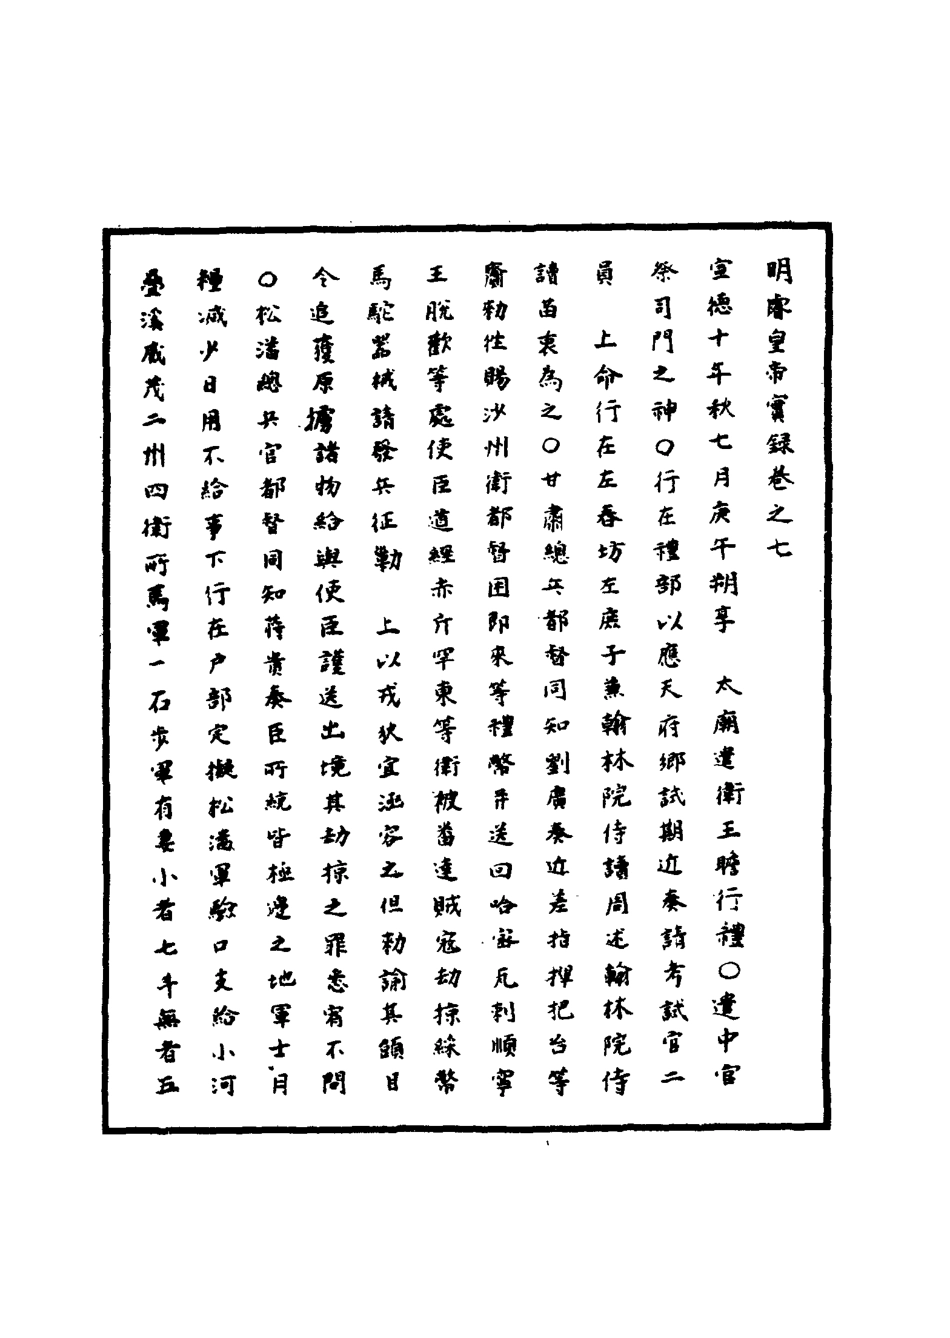 明睿皇帝實録卷之七
宣德十年秋七月庚午朔享　太廟遣衛王瞻行禮○遣中官
祭司門之神○行在禮部以應天府鄉試期近奏請考試官二
員　上命行在左春坊左庶子兼翰林院侍讀周述翰林院侍
讀苗衷為之○甘肅總兵都督同知劉廣奏近差指揮把台等
齎勑徃賜沙州衛都督困即來等禮幣并送回哈密瓦剌順寧
王脫歡等處使臣道經赤斤罕東等衛被畨達賊寇劫掠綵幣
馬駝器械請發兵征勦　上以戎狄宜涵容之但勑諭其頭目
令追獲原擄諸物給與使臣護送出境其劫掠之罪悉宥不問
○松潘總兵官都督同知蔣貴奏臣所統皆極邊之地軍士月
糧减少日用不給事下行在户部定擬松潘軍驗口支給小河
疊溪威茂二州四衛所馬軍一石步軍有妻小者七斗無者五